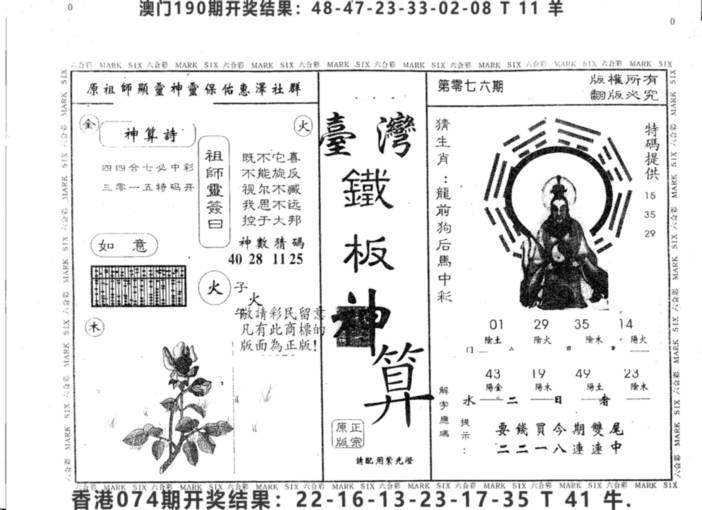 澳门190期开奖结果：48-47-23-33-02-08 T 11 羊
原祖師顯靈神靈保佑惠澤社群
金
神算詩
火
四四合七必中彩
三零一五特码开
祖師靈簽曰
既不它喜
不能旋反
视尔不臧
我思不远
控于大邦
如意
神數猜碼
40 28 11 25
火
子
火
敬請彩民留意
凡有此商標的
版面為正版!
木
臺灣
鐵
板
神
算
正宗
原版
請配用紫光燈
第零七六期
版權所有
翻版必究
猜生肖：龍前狗后馬中彩
特碼提供
15
35
29
01 29 35 14
陰土 陰火 陰木 陽火
43 19 49 23
陽金 陽木 陽土 陰木
解字應碼
水二日者
提示：
要錢買今期雙尾
二二一八連連中
六合彩 MARK SIX 六合彩 MARK SIX 六合彩 MARK SIX 六合彩 MARK SIX
香港074期开奖结果：22-16-13-23-17-35 T 41 牛.